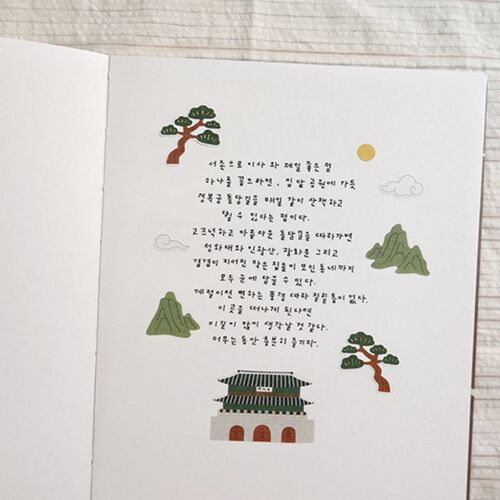 서촌으로 이사 와 제일 좋은 점
하나를 꼽으라면, 집 앞 공원에 가듯
경복궁 돌담길을 매일 같이 산책하고
뛸 수 있다는 점이다.
고즈넉하고 아름다운 돌담길을 따라가면
청와대와 인왕산, 광화문 그리고
겹겹이 지어진 작은 집들이 모인 동네까지
모두 눈에 담을 수 있다.
계절이면 변하는 풍경 따라 질릴 틈이 없다.
이 곳을 떠나게 된다면
이 길이 많이 생각날 것 같다.
머무는 동안 충분히 즐기자.